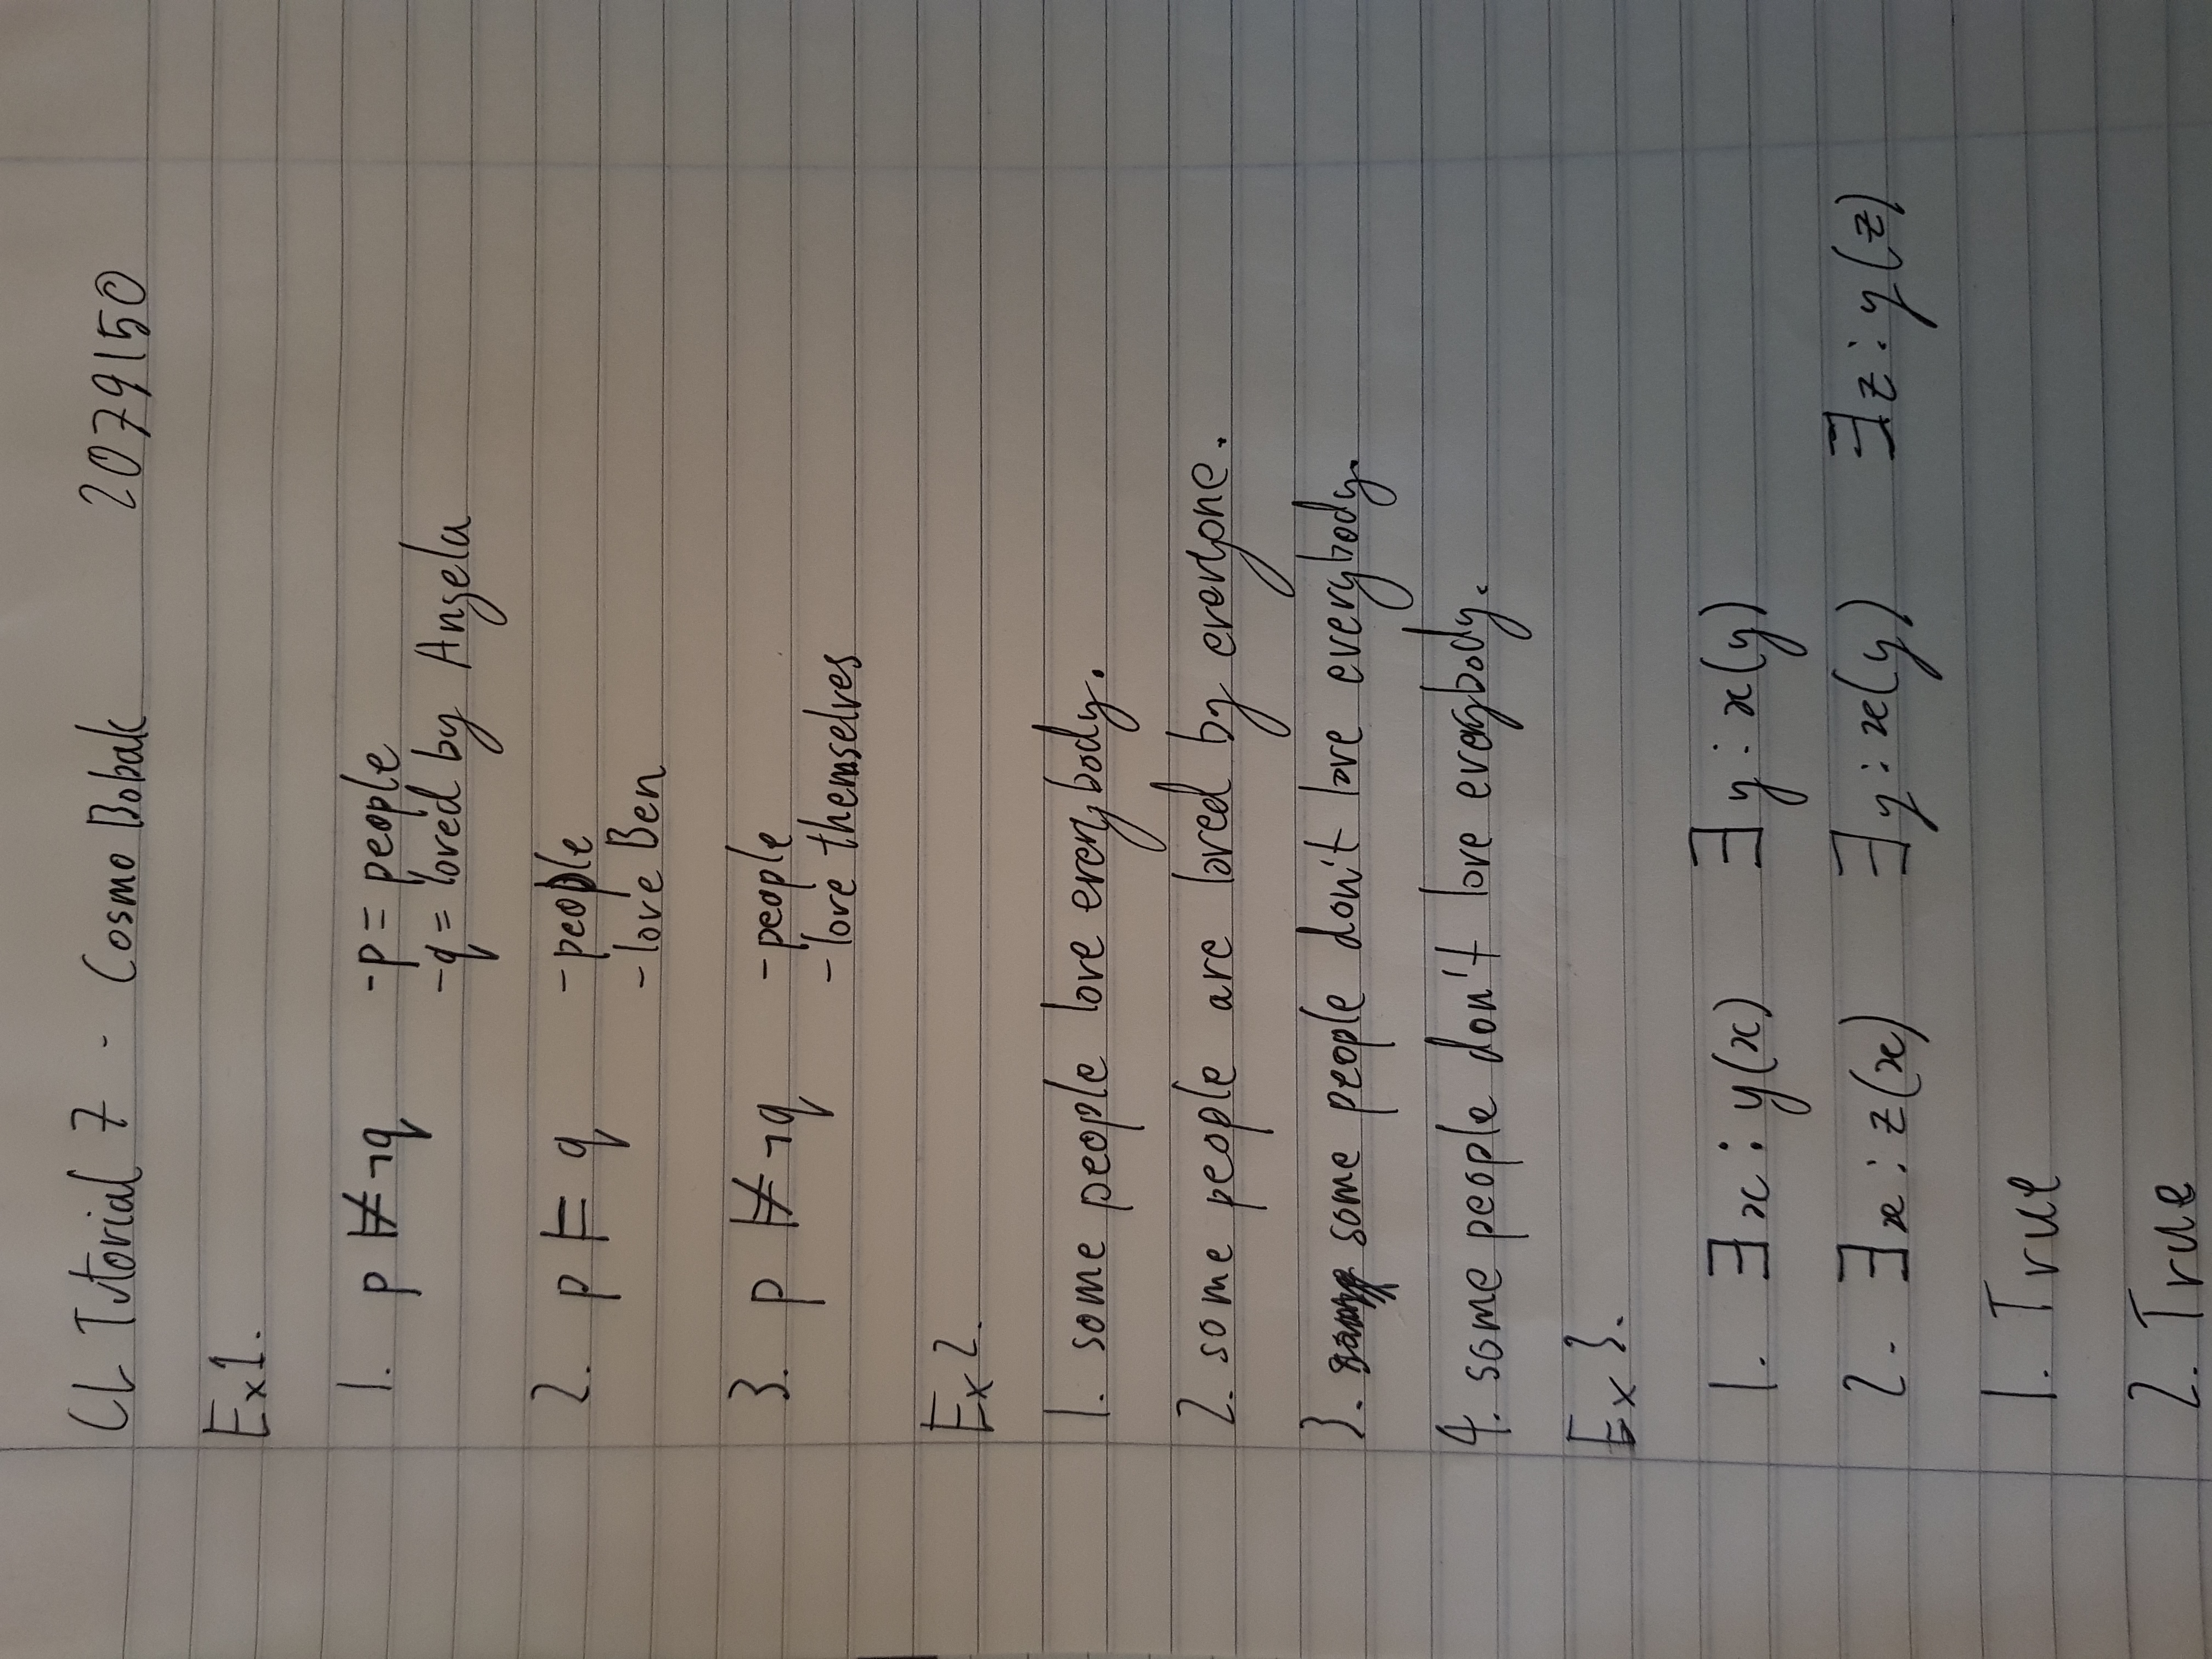 CL Tutorial 7 - Cosmo Bobak 2079150
Ex1.
1. p ⊭ ¬q -p = people
-q = loved by Angela
2. p ⊨ q -people
-love Ben
3. p ⊭ ¬q -people
-love themselves
Ex 2.
1. some people love everybody.
2. some people are loved by everyone.
3. some people don't love everybody.
4. some people don't love everybody.
Ex 3.
1. ∃x : y(x) ∃y : x(y)
2. ∃x : z(x) ∃y : x(y) ∃z : y(z)
1. True
2. True